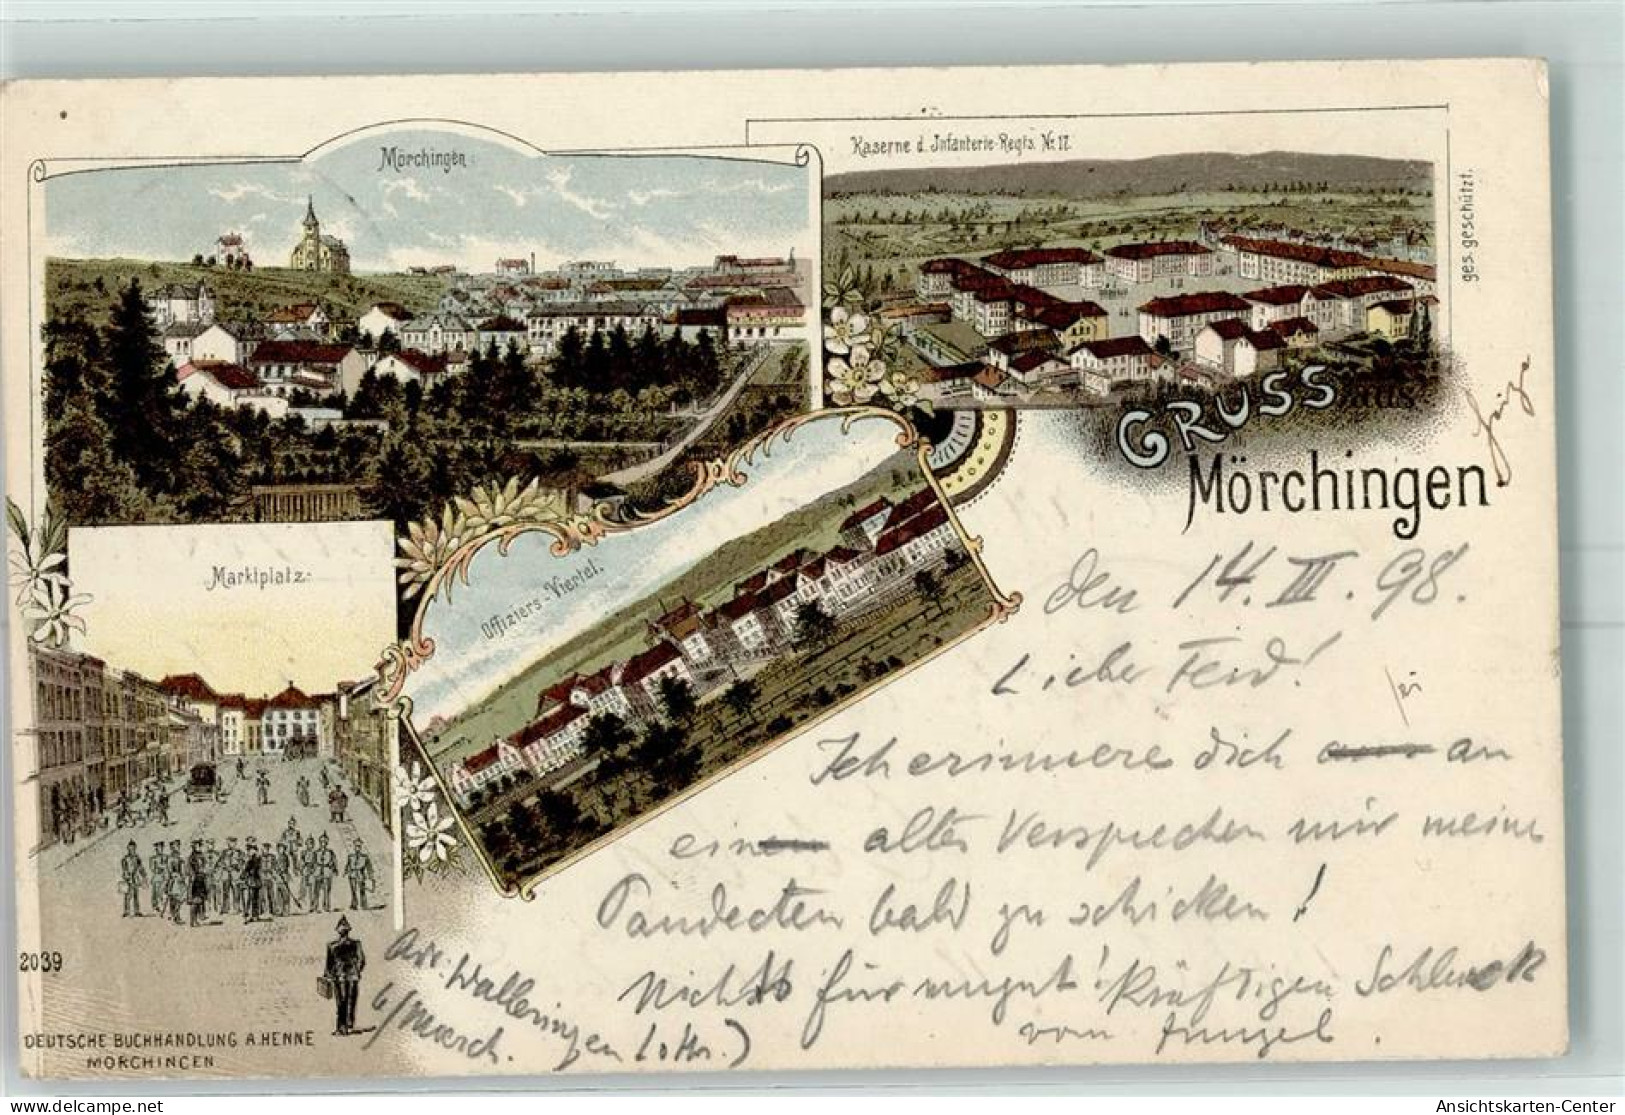 Mörchingen
Kaserne d. Infanterie-Regts. № 17.
ges. geschützt.
GRUSS aus
Mörchingen
Marktplatz.
Offiziers-Viertel.
den 14. III. 98.
Lieber Ferd!
Ich erinnere dich an
ein altes Versprechen mir meine
Pandecten bald zu schicken!
Nichts für ungut! Kräftigen Schluck
vom
2039
Adr. Walleringen
b/Moersch. Lothr.)
DEUTSCHE BUCHHANDLUNG A. HENNE
MÖRCHINGEN
delcampe.net
Ansichtskarten-Center